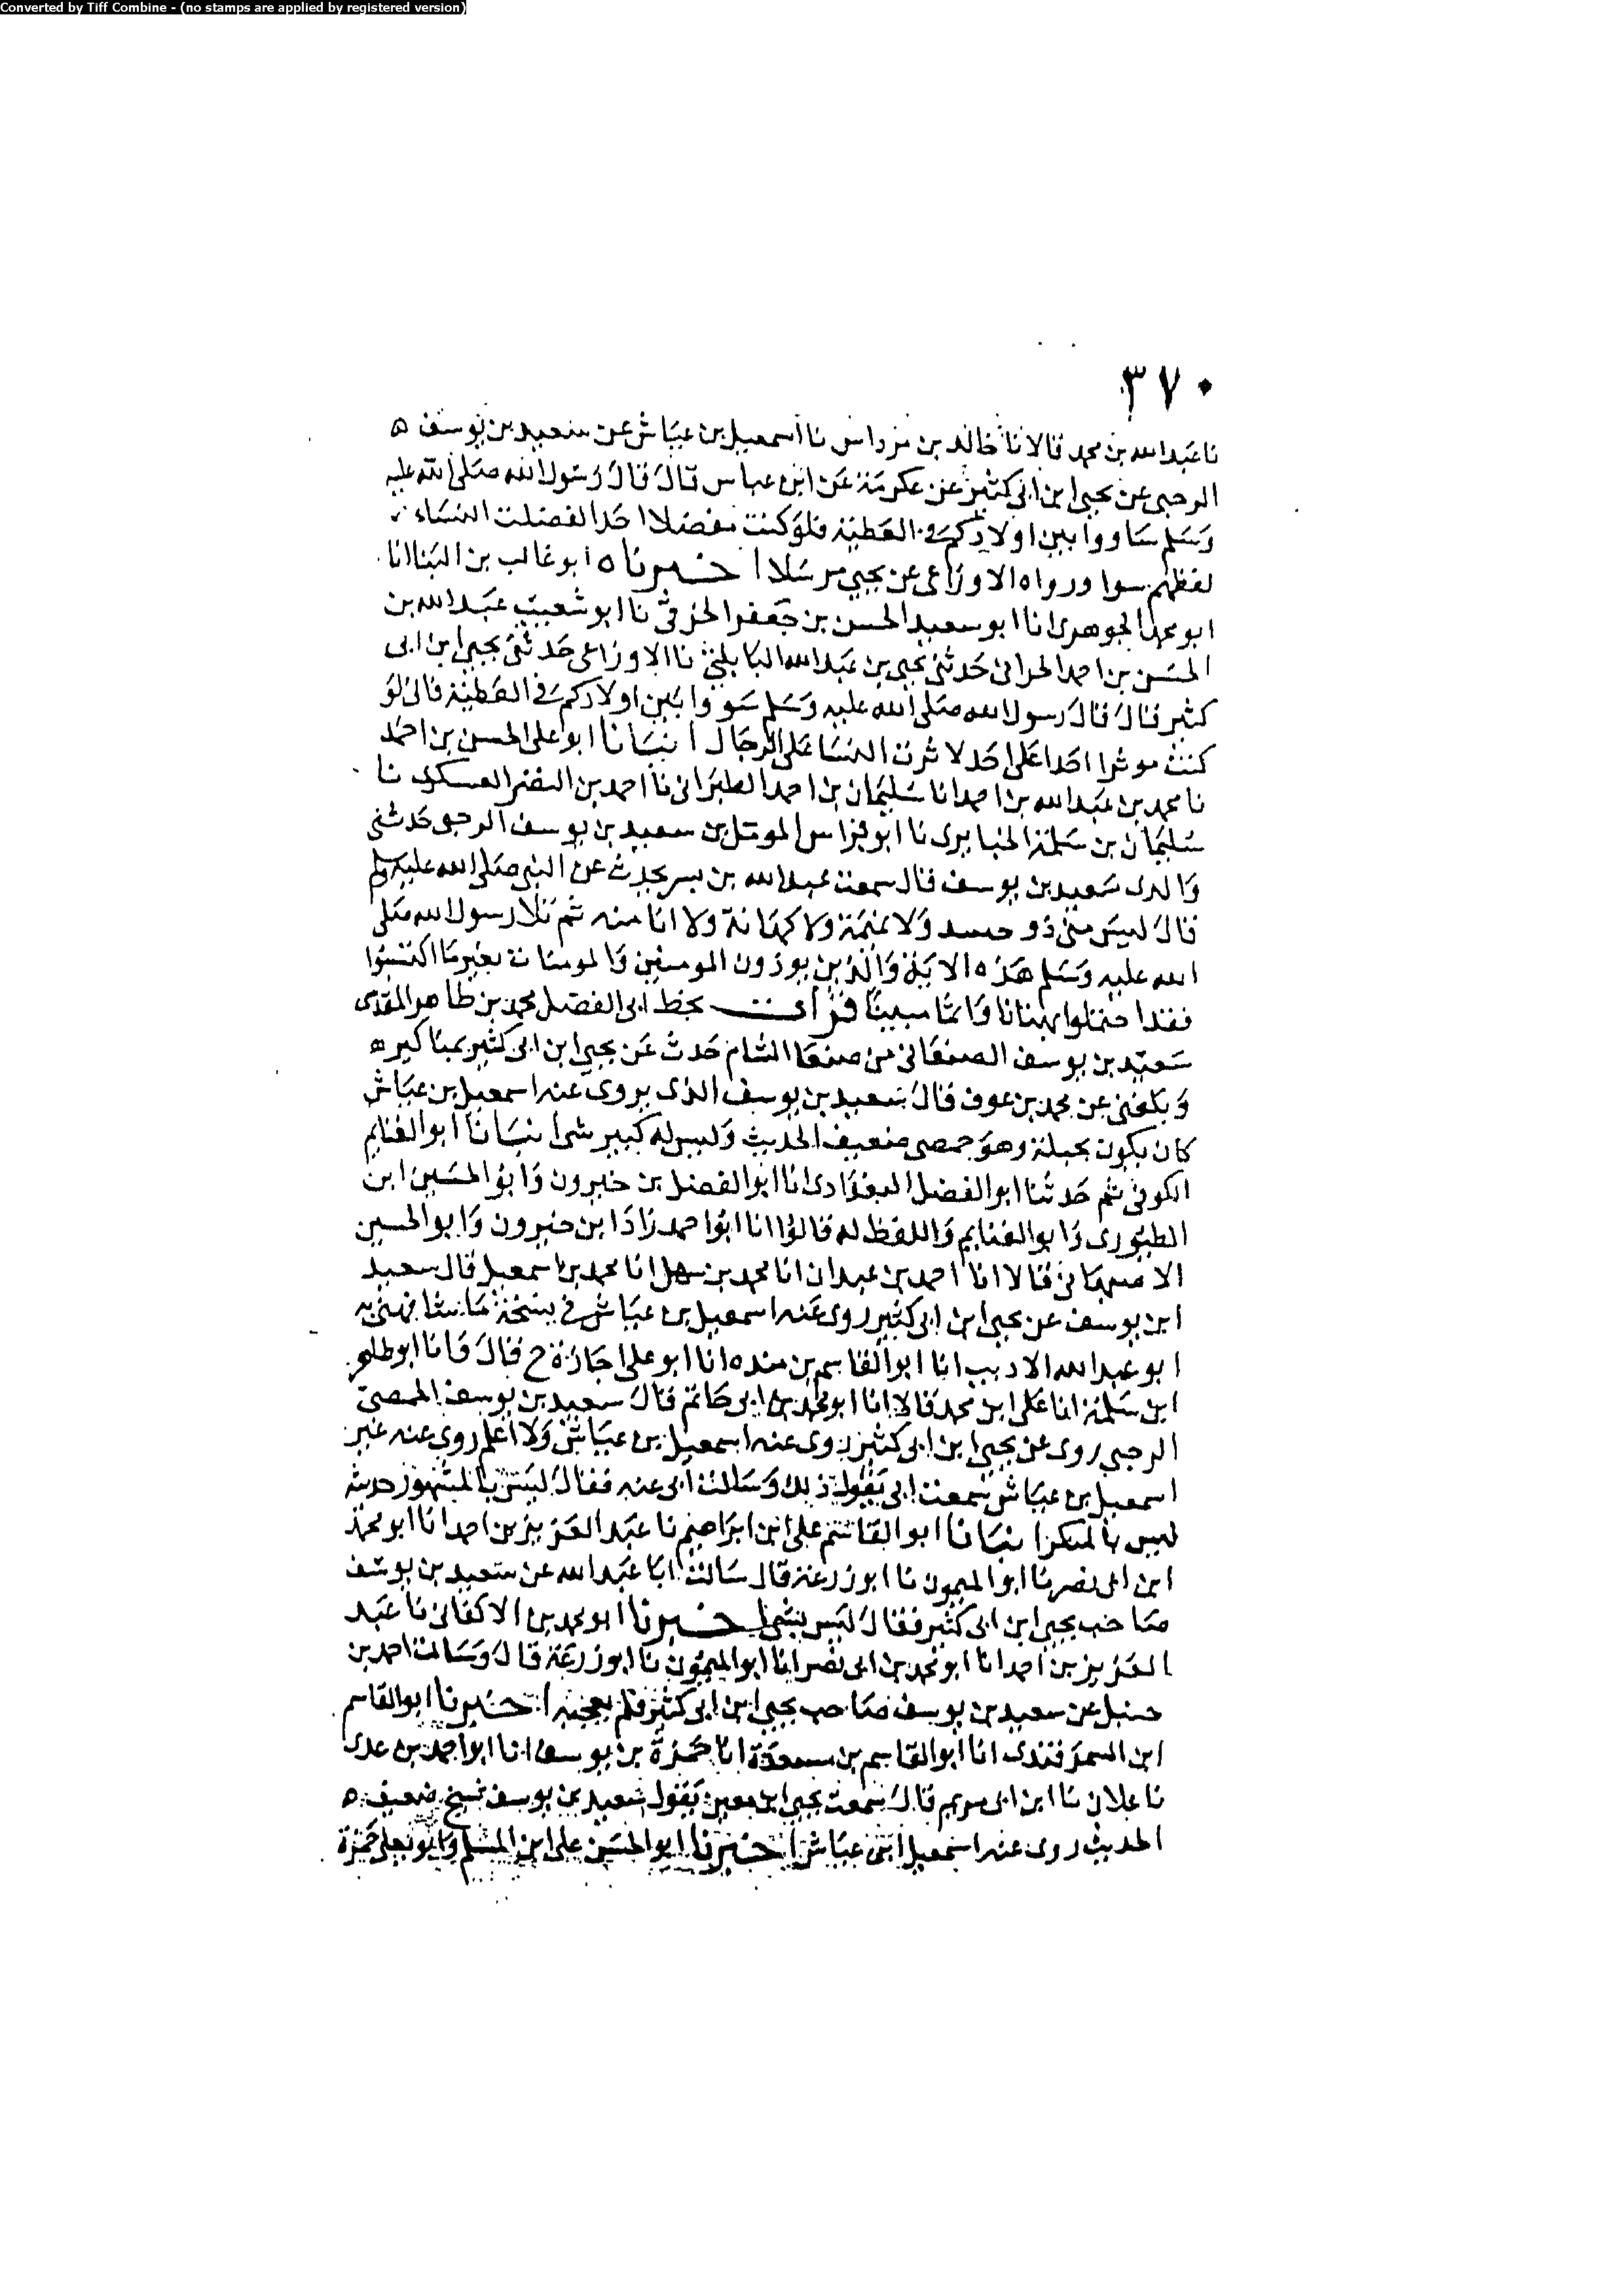 Converted by Tiff Combine - (no stamps are applied by registered version)
٣٧٠
نا عبد الله بن محمد قالا نا خالد بن مرداس نا اسمعيل بن عياش عن سعيد بن يوسف ه
الرحبي عن يحيى ابن ابى كثير عن عكرمة عن ابن عباس قال قال رسول الله صلى الله عليه
وسلم ساووا بين اولادكم في العطية فلو كنت مفضلا احدا لفضلت النساء
لفظهم سوا ورواه الاوزاعى عن يحيى مرسلا اخبرناه ابو غالب بن البنا انا
ابو محمد الجوهرى انا ابو سعيد الحسن بن جعفر الحرفى نا ابو شعيب عبد الله بن
الحسن بن احمد الحرانى حدثنى يحيى بن عبد الله البابلتى نا الاوزاعى حدثنى يحيى ابن ابى
كثير قال قال رسول الله صلى الله عليه وسلم سووا بين اولادكم في العطية فانى لو
كنت موثرا احدا على احد لاثرت النسا على الرجال انبانا ابو على الحسن بن احمد
نا محمد بن عبد الله بن احمد انا سليمان بن احمد الطبرانى نا احمد بن النضر العسكرى نا
سليمان بن سلمة الخبايرى نا ابو فراس المومل بن سعيد بن يوسف الرحبى حدثنى
والدى سعيد بن يوسف قال سمعت عبد الله بن بسر يحدث عن النبى صلى الله عليه وسلم
قال ليس منى ذو حسد ولا نميمة ولا كهانة ولا انا منه ثم تلا رسول الله صلى
الله عليه وسلم هذه الاية والذين يوذون المومنين والمومنات بغير ما اكتسبوا
فقد احتملوا بهتانا واثما مبينا قرات بخط ابى الفضل محمد بن طاهر المقدسى
سعيد بن يوسف الصنعانى من صنعا الشام حدث عن يحيى ابن ابى كثير بمناكير ه
وبلغنى عن محمد بن عوف قال سعيد بن يوسف الذى يروى عنه اسمعيل بن عياش
كان يكون بجبلة وهو حمصى ضعيف الحديث وليس له كبير شى انبانا ابو الغنايم
الكوفى ثم حدثنا ابو الفضل البغدادى انا ابو الفضل بن خيرون وابو الحسين ابن
الطيورى وابو الغنايم واللفظ له قالوا انا ابو احمد زاد ابن خيرون وابو الحسين
الاصبهانى قالا انا احمد بن عبدان انا محمد بن سهل انا محمد بن اسمعيل قال سعيد
ابن يوسف عن يحيى ابن ابى كثير روى عنه اسمعيل بن عياش في نسخة ما شافهنى به
ابو عبد الله الاديب انا ابو القاسم بن منده انا ابو على اجازة ح قال وانا ابو طاهر
ابن سلمة انا على ابن محمد قالا انا ابو محمد بن ابى حاتم قال سعيد بن يوسف الحمصى
الرحبى روى عن يحيى ابن ابى كثير روى عنه اسمعيل بن عياش ولا اعلم روى عنه غير
اسمعيل بن عياش سمعت ابى يقول ذلك وسالت ابى عنه فقال ليس بالمشهور حديثه
ليس بالمنكر انبانا ابو القاسم على ابن ابراهيم نا عبد العزيز بن احمد انا ابو محمد
ابن ابى نصر نا ابو الميمون نا ابو زرعة قال سالت ابا عبد الله عن سعيد بن يوسف
صاحب يحيى ابن ابى كثير فقال ليس بشى اخبرنا ابو محمد بن الاكفانى نا عبد
العزيز بن احمد انا ابو محمد بن ابى نصر انا ابو الميمون نا ابو زرعة قال وسالت احمد بن
حنبل عن سعيد بن يوسف صاحب يحيى ابن ابى كثير فلم يعجبه اخبرنا ابو القاسم
ابن السمرقندى انا ابو القاسم بن مسعدة انا حمزة بن يوسف انا ابو احمد بن عدى
نا علان نا ابن ابى مريم قال سمعت يحيى ابن معين يقول سعيد بن يوسف شيخ ضعيف ه
الحديث روى عنه اسمعيل ابن عياش اخبرنا ابو الحسن على ابن المسلم وابو يعلى حمزة